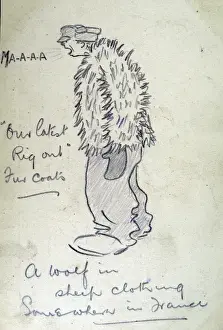 MA-A-A-A
"Our latest
Rig out"
Fur Coats
A wolf in
sheep clothing
Somewhere in France